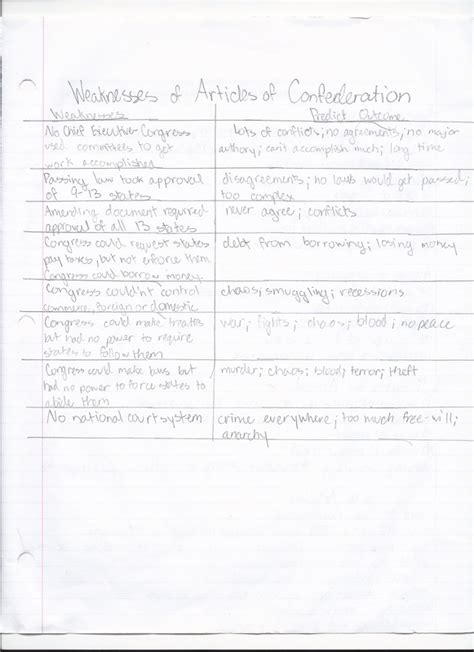 Weaknesses of Articles of Confederation
Weaknesses Predict Outcome
No Chief Executive Congress
used committees to get
work accomplished
Lots of conflicts; no agreements; no major
authory; can't accomplish much; long time
Passing law took approval
of 9-13 states
disagreements; no laws would get passed;
too complex
Amending document required
approval of all 13 states
never agree; conflicts
Congress could request states
pay taxes, but not enforce them
Congress could borrow money.
debt from borrowing; losing money
Congress couldn't control
commerce, foreign or domestic
chaos; smuggling; recessions
Congress could make treaties
but had no power to require
states to follow them
war; fights; chaos; blood; no peace
Congress could make laws but
had no power to force states to
abide them
murder; chaos; blood; terror; theft
No national court system
crime everywhere; too much free-will;
anarchy